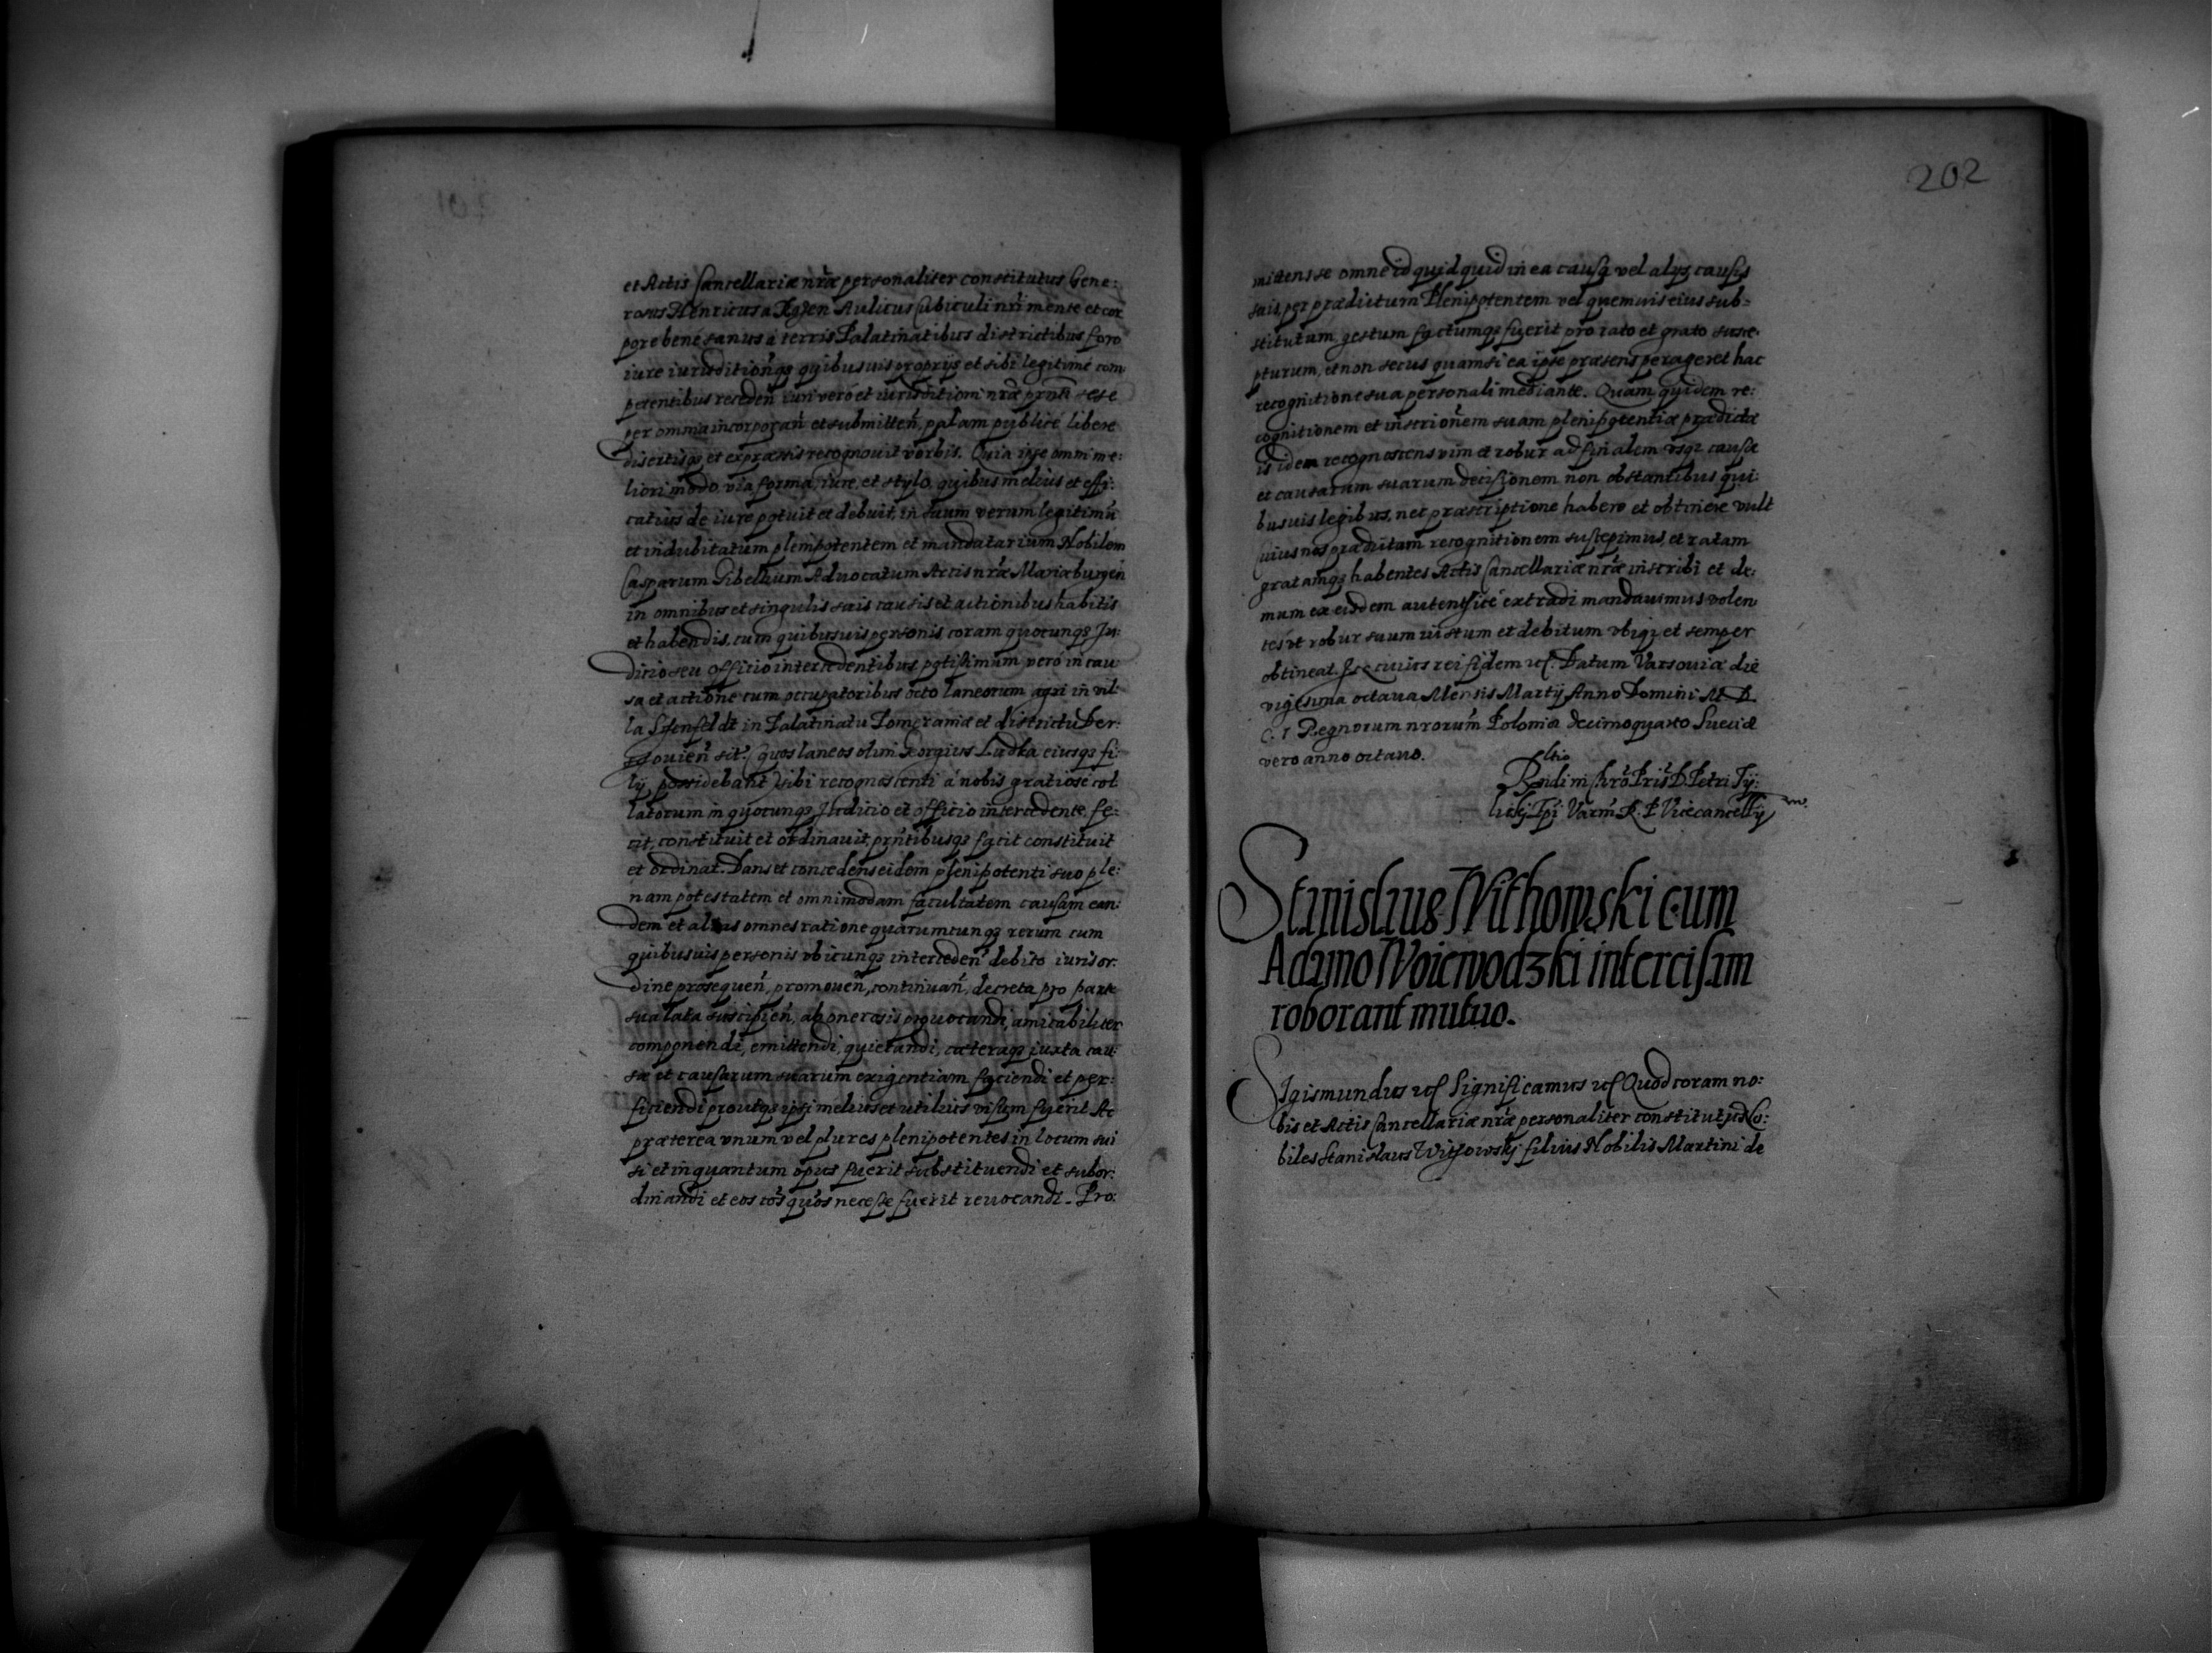 et Actis Cancellariæ nræ personaliter constitutus Gene:
rosus Henricus a Aulicus Cubiculi nri mente et cor
pore bene sanus a terris Palatinatibus districtibus foro
iure iurisditionq; quibusuis proprijs et sibi legitime com
petentibus receden cun vero et iurisditioni nræ prnti sese
per omnia incorporan et submitten, palam publice libere
disertisq; et expræssis recognouit verbis. Quia ipse omni me:
liori modo via forma, iure, et stylo, quibus melius et effi:
catius de iure potuit et debuit, in suum verum legitimu
et indubitatum plenipotentem et mandatarium Nobilem
Casparum Gibellium Aduocatum Arcis nræ Mariæburgen
in omnibus et singulis suis causis et actionibus habitis
et habendis, cum quibusuis personis coram quocunq; Ju:
dicio seu officio intercedentibus potissimum vero in cau:
sa et actione cum occupatoribus octo laneorum agri in vil:
la in Palatinatu Pomeraniæ et districtu Der:
sit. Quos laneos olim Georgius Ludka eiusq; fi:
lij possidebant sibi recognoscenti a nobis gratiose col
latorum in quocunq; Iudicio et officio intercedente, fe:
cit, constituit et ordinauit, prntibusq; facit constituit
et ordinat. Dans et concedens eidem plenipotenti suo ple:
nam potestatem et omnimodam facultatem causam ean:
dem et alias omnes ratione quarumcunq; rerum cum
quibusuis personis vbicunq; interceden debito iuris or:
dine prosequen, promouen, continuan, decreta pro parte
sua lata suscipien, ab onerosis prouocandi, amicabiliter
componendi, emittendi, quietandi, cæteraq; iuxta cau:
sæ et causarum suarum exigentiam faciendi et per:
ficiendi proutq; ipsi melius et utilius visum fuerit Ac
præterea vnum vel plures plenipotentes in locum sui
si et in quantum opus fuerit substituendi et subor:
dinandi et eos tos quos necesse fuerit reuocandi. Pro:
202
mittens se omne id quidquid in ea causa vel alijs causis
suis per prædictum Plenipotentem vel quemuis eius sub=
stitutum gestum factumq; fuerit pro rato et grato susce
pturum, et non secus quam si ea ipse præsens perageret hac
recognitione sua personali mediante. Quam quidem re:
cognitionem et inscrionem suam plenipotentiæ prædictæ
is idem recognoscens vim et robur ad finalem vsq; causæ
et causarum suarum decisionem non obstantibus qui:
busuis legibus, nec præscriptione habere et obtinere vult
Cuius nos prædictam recognitionem suscepimus, et ratam
gratamq; habentes Actis Cancellariæ nræ inscribi et de:
mum ex eisdem autentice extradi mandauimus volen
tes vt robur suum iustum et debitum vbiq; et semper
obtineat. In cuius rei fidem etc. Datum Varsouiæ die
vigesima octaua Mensis Martij Anno Domini M. D.
C. I Regnorum nrorum Poloniæ decimoquarto Sueciæ
vero anno octauo.
Rltio
Rndi in Chro Pris D. Petri Ty:
licki Epi Varm R. P. Vicecancellij
Stanislaus Withowski cum
Adamo Woiewodzki intercisam
roborant mutuo.
Sigismundus etc Significamus etc Quod coram no:
bis et Actis Cancellariæ nræ personaliter constituti No:
biles Stanislaus Withowskj filius Nobilis Martini de